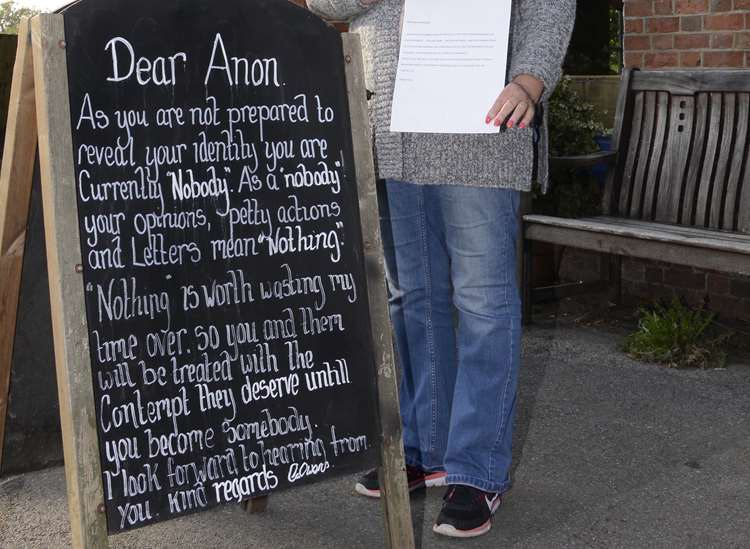 Dear Anon.
As you are not prepared to
reveal your identity you are
Currently "Nobody". As a "nobody"
your opinions, petty actions
and Letters mean "Nothing".
"Nothing" is worth wasting my
time over. So you and them
will be treated with the
Contempt they deserve untill
you become Somebody.
I look forward to hearing from
you. Kind regards